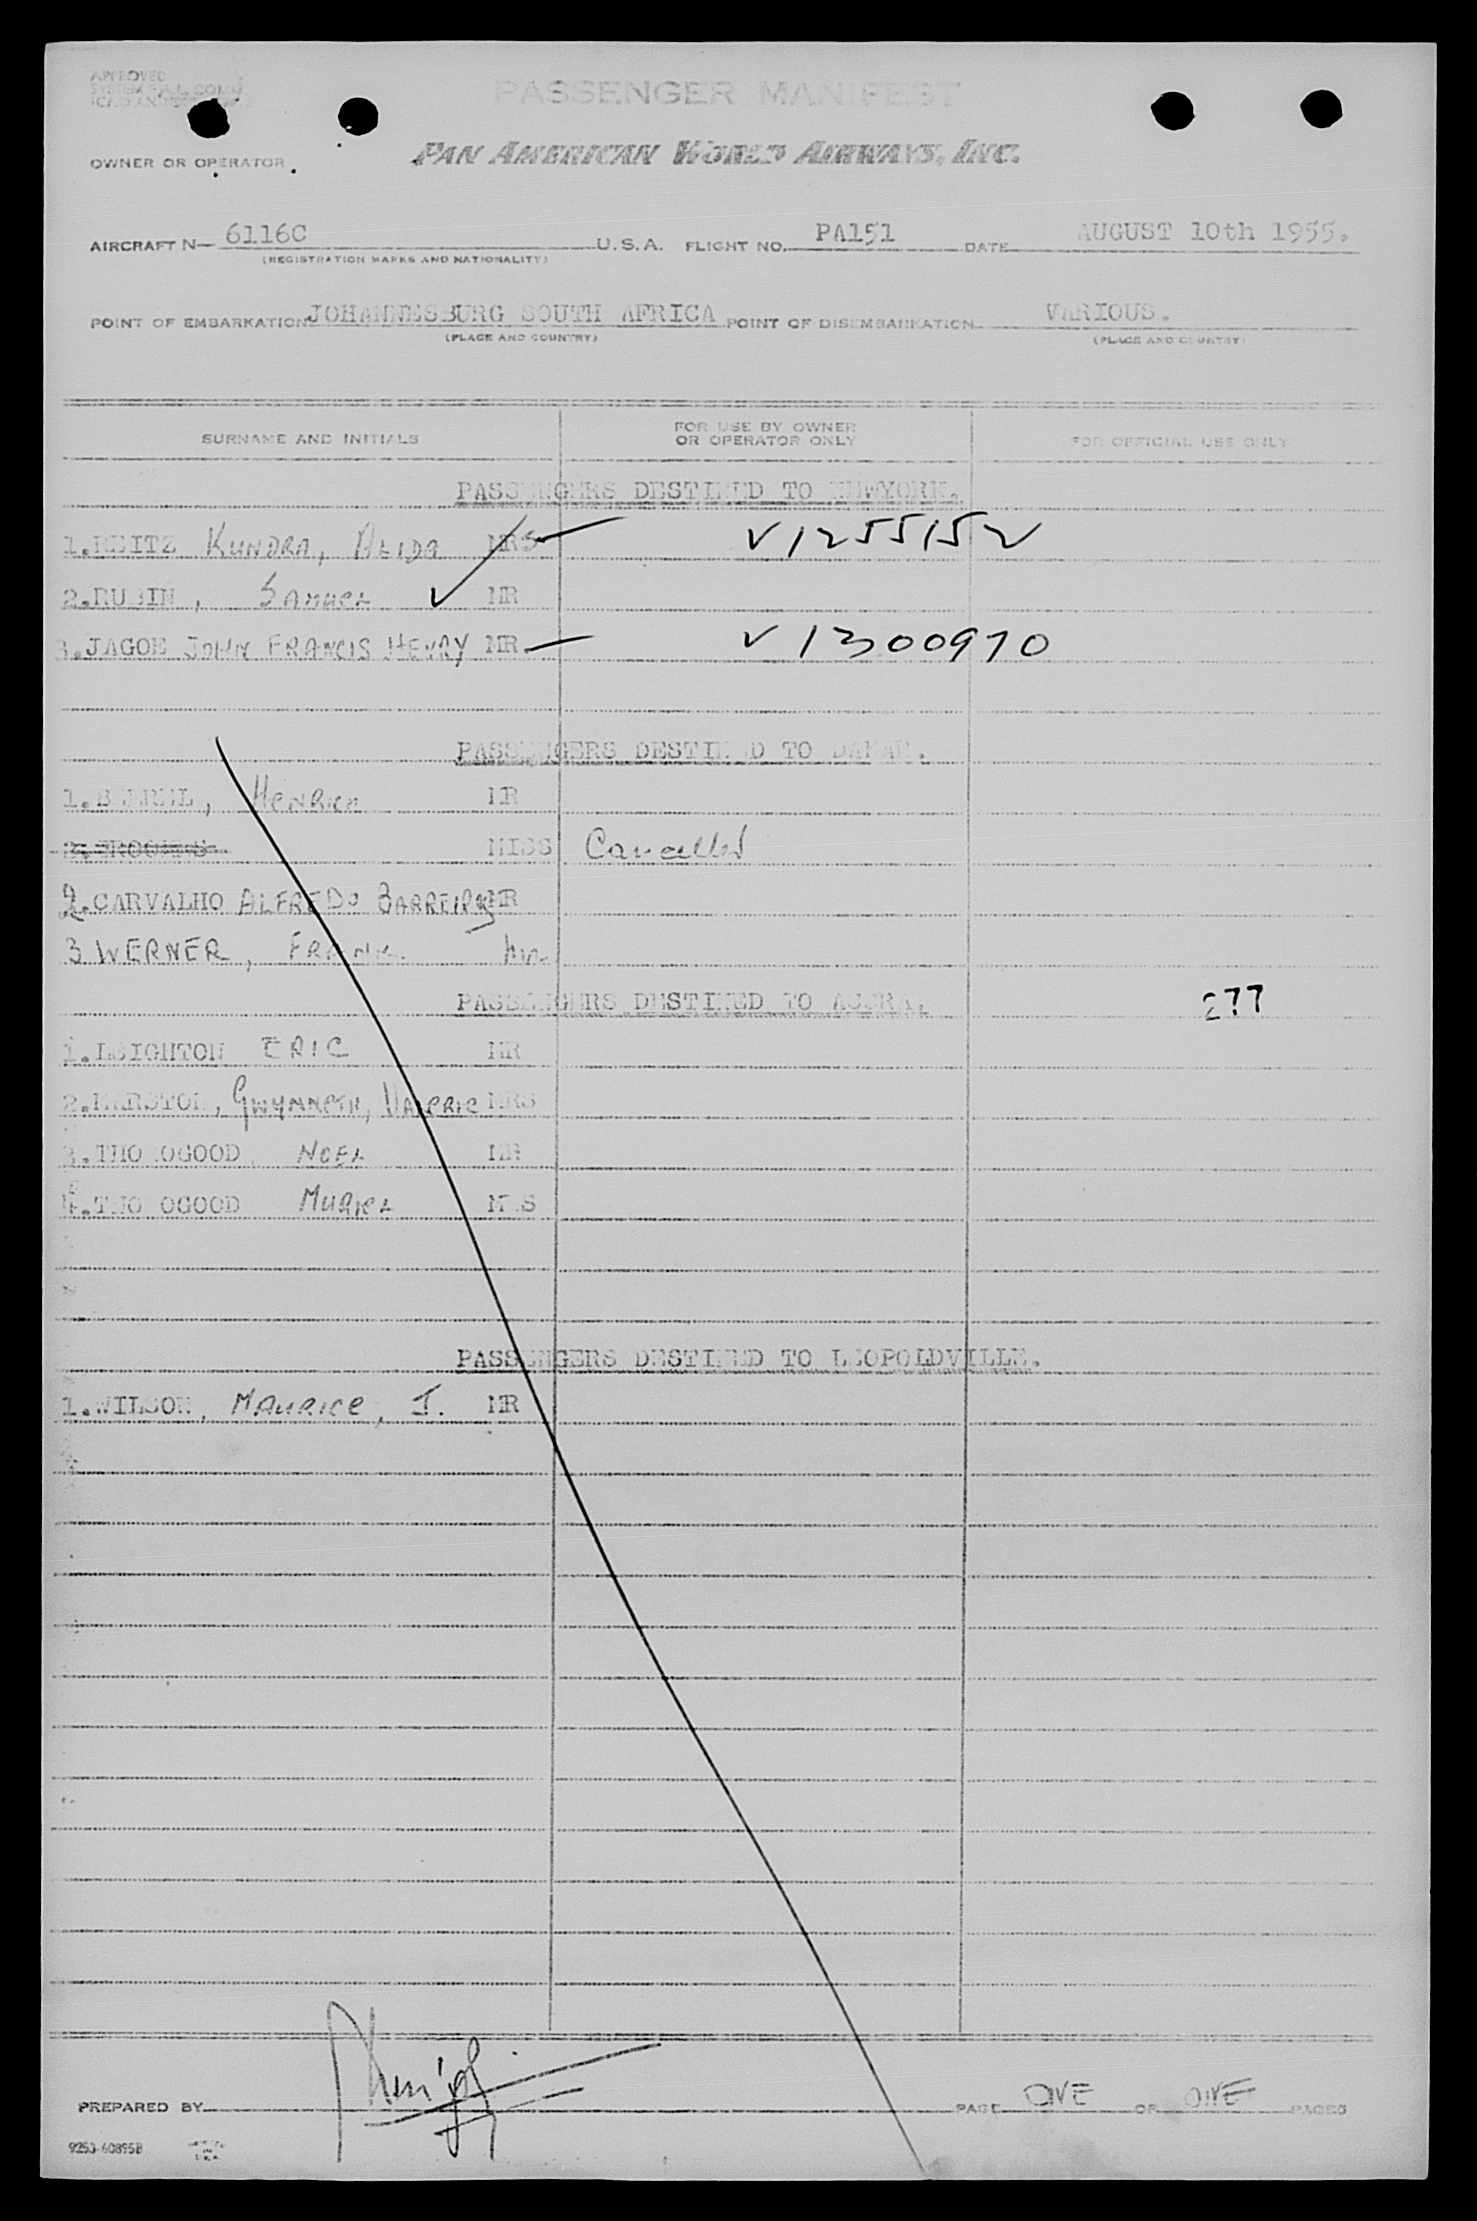 APPROVED
PASSENGER MANIFEST
OWNER OR OPERATOR PAN AMERICAN WORLD AIRWAYS, INC.
AIRCRAFT N- 6116C U.S.A. FLIGHT NO. PA151 DATE AUGUST 10th 1955.
(REGISTRATION MARKS AND NATIONALITY)
POINT OF EMBARKATION JOHANNESBURG SOUTH AFRICA POINT OF DISEMBARKATION VARIOUS.
(PLACE AND COUNTRY) (PLACE AND COUNTRY)
SURNAME AND INITIALS FOR USE BY OWNER OR OPERATOR ONLY FOR OFFICIAL USE ONLY
PASSENGERS DESTINED TO NEWYORK.
1. KUNDRA, ALIDA MRS V1255152
2.RUBIN, SAMUEL MR
3.JAGOE JOHN FRANCIS HENRY MR V1300970
PASSENGERS DESTINED TO DAKAR.
1. MR
2. MISS Cancelled
2.CARVALHO ALFREDO MR
3 WERNER, FRANK. Mr.
PASSENGERS DESTINED TO ACCRA.
277
1.LEIGHTON ERIC MR
2.MARSTON, GWYNNETH, VALERIE MRS
3.THOROGOOD, NOEL MR
4.THOROGOOD MURIEL MRS
PASSENGERS DESTINED TO LEOPOLDVILLE.
1.WILSON, MAURICE, J. MR
PREPARED BY PAGE ONE OF ONE PAGES
9253-60895B